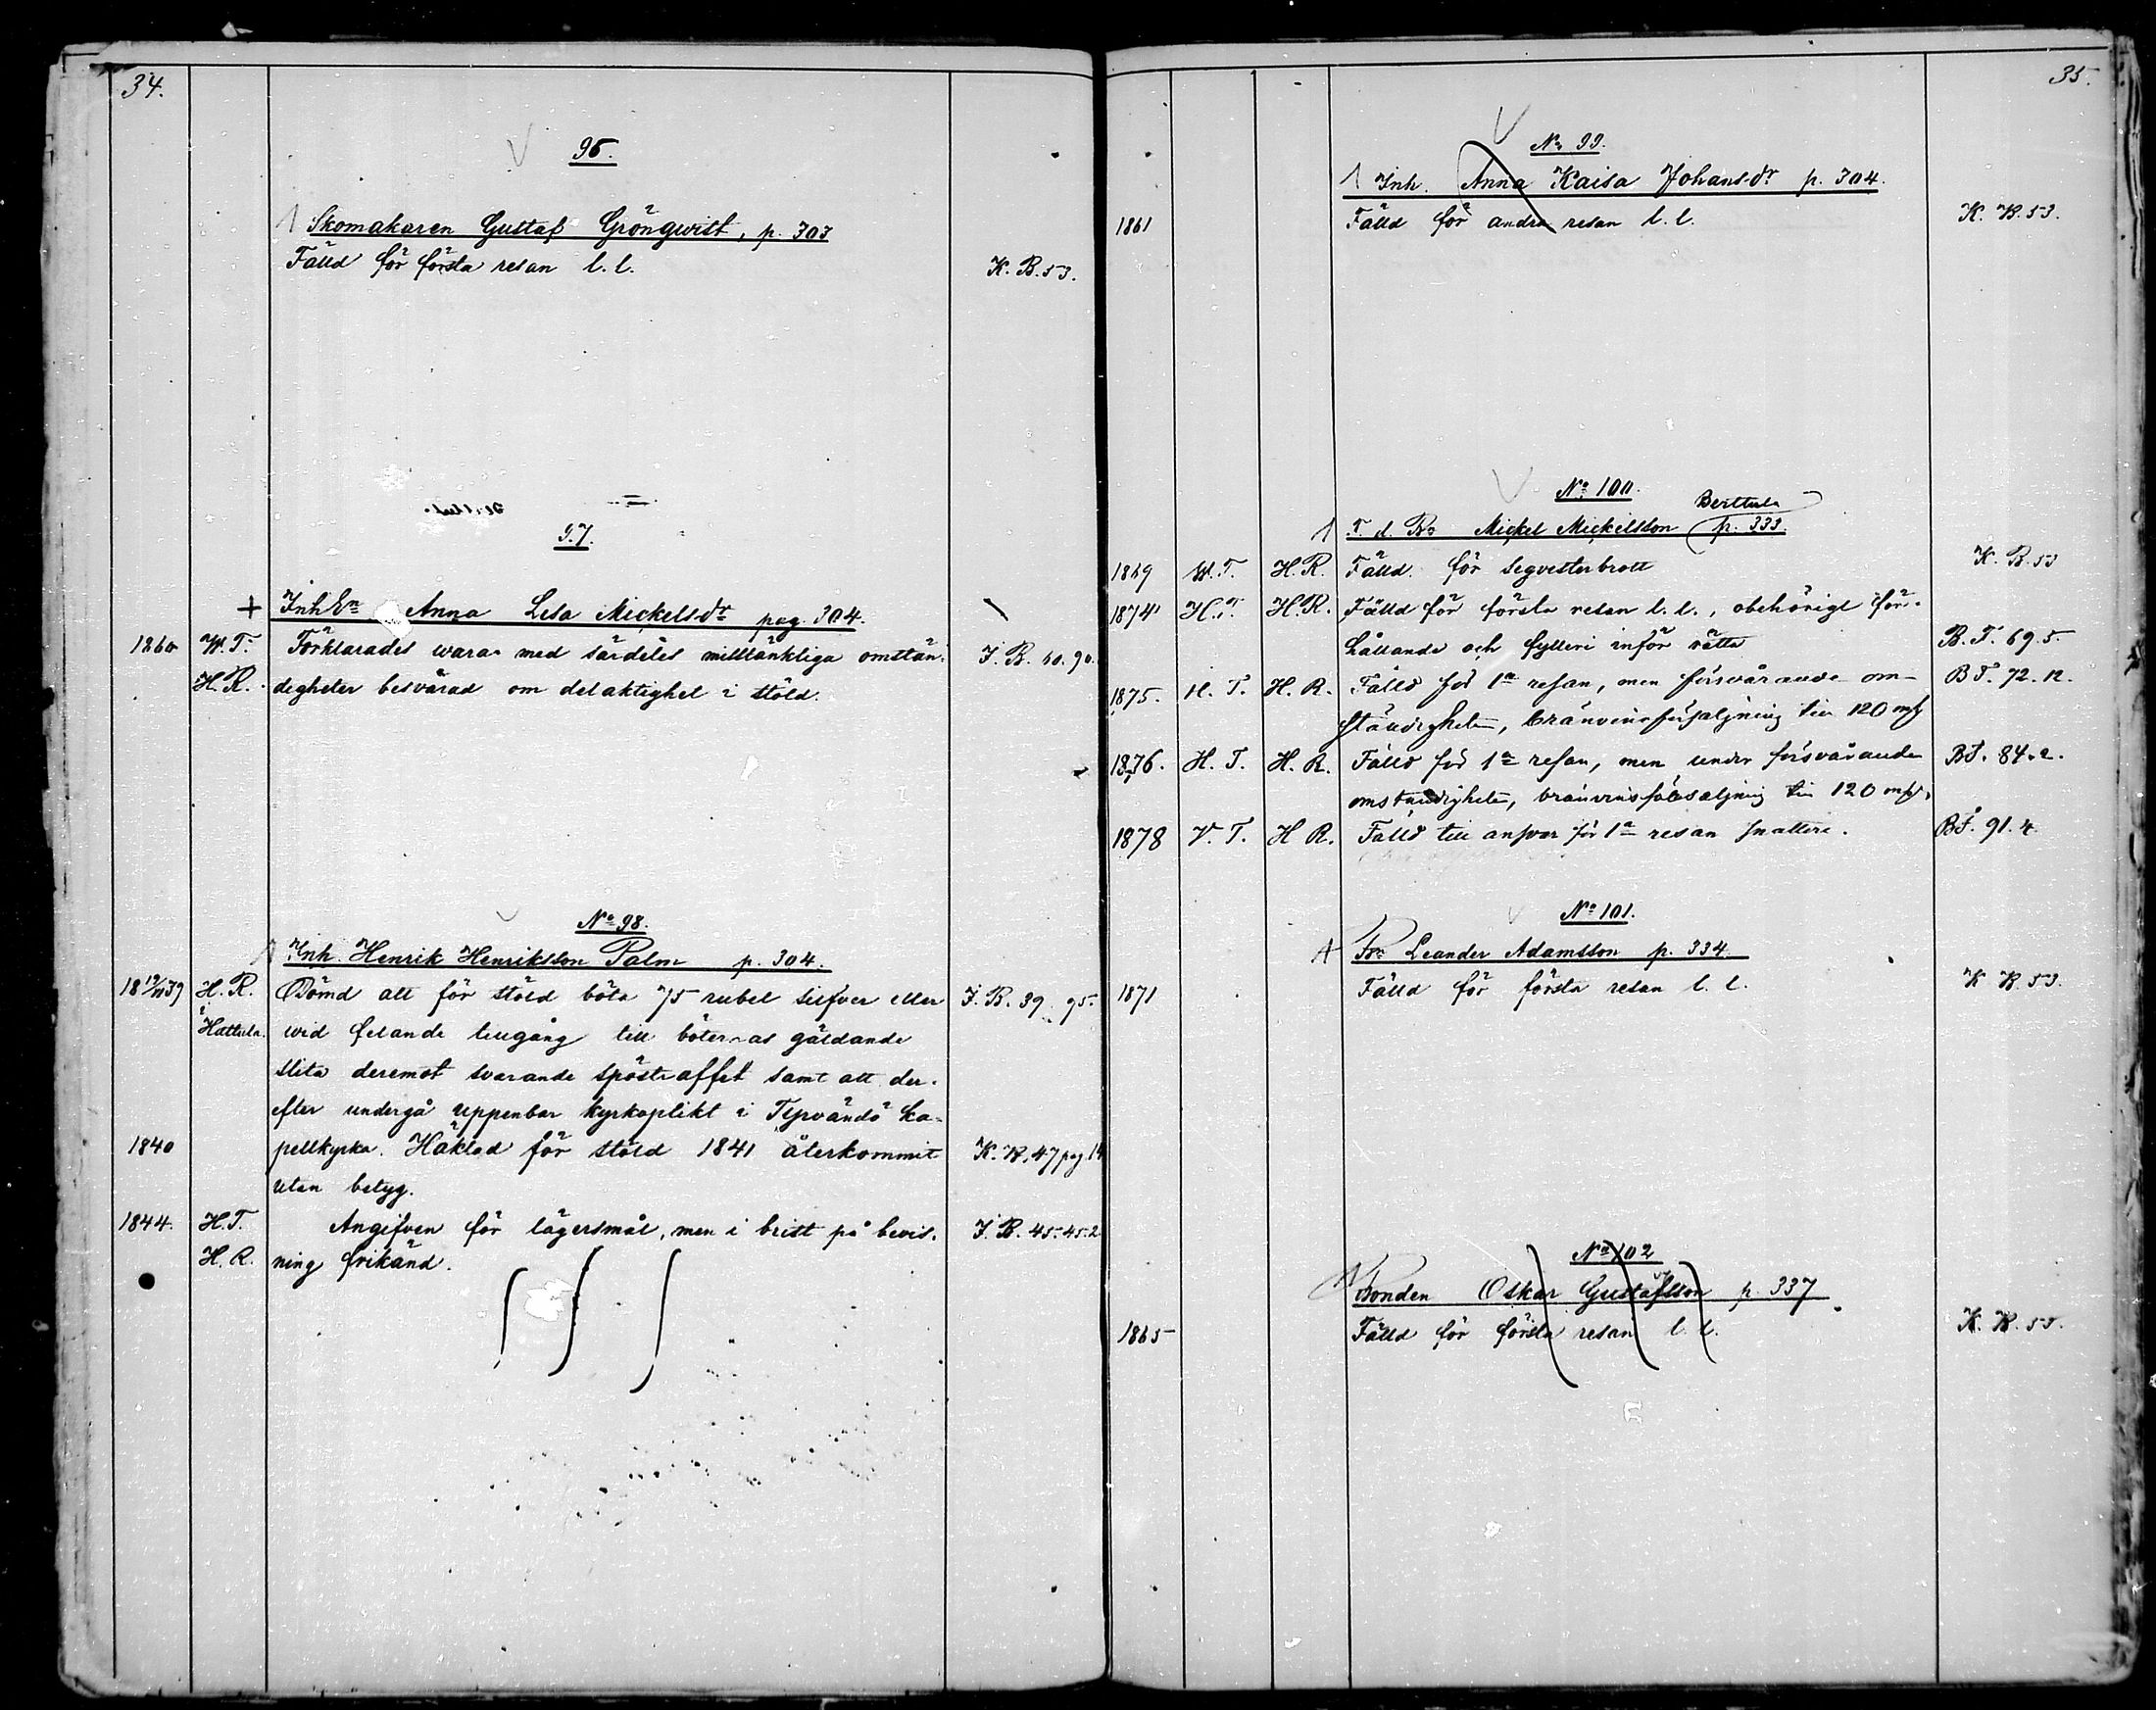 34.
96.
Skomakaren Gustaf Gröngwist, p. 303
Fälld för första resan l. l. K. B. 53.
97.
+ Inh En Anna Lesa Mickelsdr pag. 304.
1860 W. T. Förklarades wara med särdeles misstänkliga omstän- I. B. 40. 90.
H. R. digheter besvärad om delaktighet i stöld.
No 98.
Inh. Henrik Henriksson Palm p. 304.
18 12/11 39 H. R. Dömd att för stöld böta 75 rubel silfver eller I. B. 39. 95.
i Hattula. wid felande tillgång till böternas gäldande
slita deremot svarande spöstraffet samt att der-
efter undergå uppenbar kyrkoplikt i Tyrvändö ka-
1840 pellkyrka. Häktad för stöld 1841 återkommit K. B. 47 pag. 14
utan betyg.
1844. H. T. Angifven för lägersmål, men i brist på bevis- I. B. 45-45-2
H. R. ning frikänd.
35.
No 99.
Inh. Anna Kaisa Johansdr p. 304.
1861 Fälld för andra resan l. l. K. B. 53.
No 100.
Berttula
F. d. Bn Mickel Mickelsson p. 333.
1869 W. T. H. R. Fälld för seqvesterbrott K. B. 53
1874 H. T. H. R. Fälld för första resan l. l., obehörigt för-
hållande och fylleri inför rätta B. T. 69. 5.
1875. H. T. H. R. Fälld för 1a resan, men försvårande om- B T. 72. 12.
ständigheter, bränvinsförsäljning till 120 mk
1876. H. T. H. R. Fälld för 1a resan, men under försvårande BT. 84. 2.
omständigheter, bränvinsförsäljning till 120 mk.
1878 V. T. H R. Fälld till ansvar för 1a resan snatteri. BT. 91. 4.
No 101.
Bn Leander Adamsson p. 334.
1871 Fälld för första resan l. l. K B. 53.
No 102
Bonden Oskar Gustafsson p. 337
1865 Fälld för första resan l. l. K. B. 55.